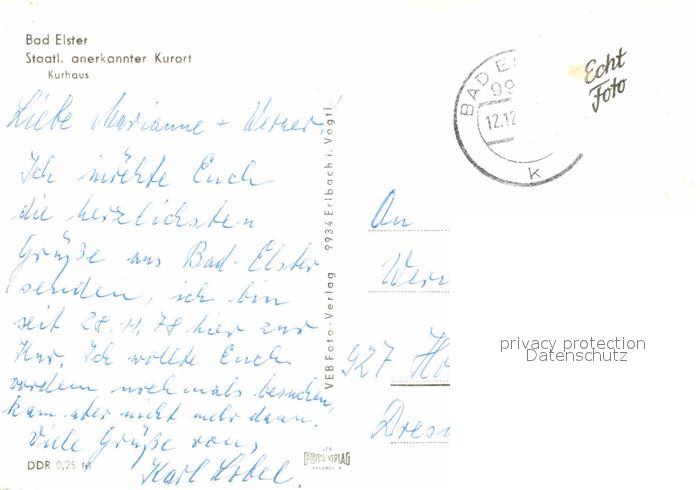 Bad Elster
Staatl. anerkannter Kurort
Kurhaus
Liebe Marianne + Werner!
Ich möchte Euch
die herzlichsten
Grüße aus Bad-Elster
senden, ich bin
seit 28.11.78 hier zur
Kur. Ich wollte Euch
vordem nochmals besuchen,
kam aber nicht mehr daan.
Viele Grüße von,
Karl Löbel.
DDR 0,25 M
VEB Foto-Verlag 9934 Erlbach i. Vogtl.
VEB
FOTO VERLAG
ERLBACH V.
BAD E
99
12.12
k
Echt
Foto
An
Wern
927 Ho
Dresd
privacy protection
Datenschutz